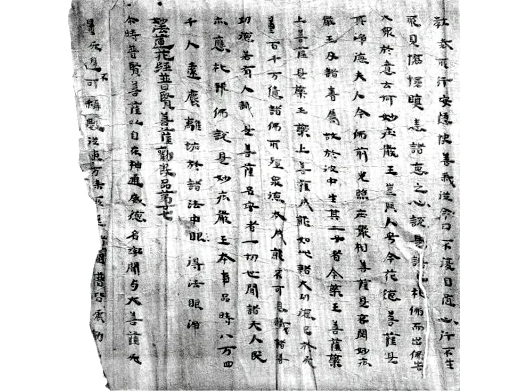 行安隱快善我從今日不復自隨心行不生
耶見憍慢瞋恚諸惡之心說是語已礼佛而出佛告
大眾於意云何妙庄嚴王豈異人乎今花德菩薩是
其淨德夫人今佛前光照庄嚴相菩薩是哀愍妙庄
嚴王及諸眷屬故於彼中生其二子者今藥王菩薩藥
上菩薩是藥王藥上菩薩成就如此諸大功德已於无
量百千万億諸佛所殖眾德本成就不可思議諸善
功德若有人識是二菩薩名字者一切世間諸天人民
亦應礼拜佛說是妙庄嚴王本事品時八万四
千人遠塵離垢於諸法中得法眼淨
妙法蓮花經普賢菩薩勸發品第廿七
尒時普賢菩薩以自在神通威德名聞与大菩薩无
量无邊不可稱數從東方來所經諸國普皆震動